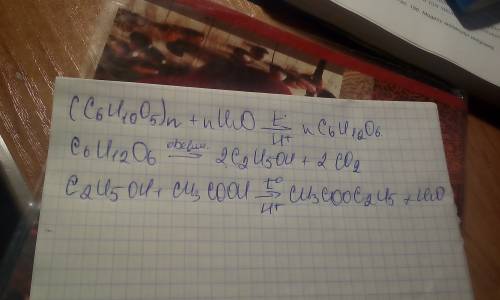 (C6H10O5)n + nH2O t° → H+ nC6H12O6
C6H12O6 → 2C2H5OH + 2CO2
C2H5OH + CH3COOH t° → H+ CH3COOC2H5 + H2O